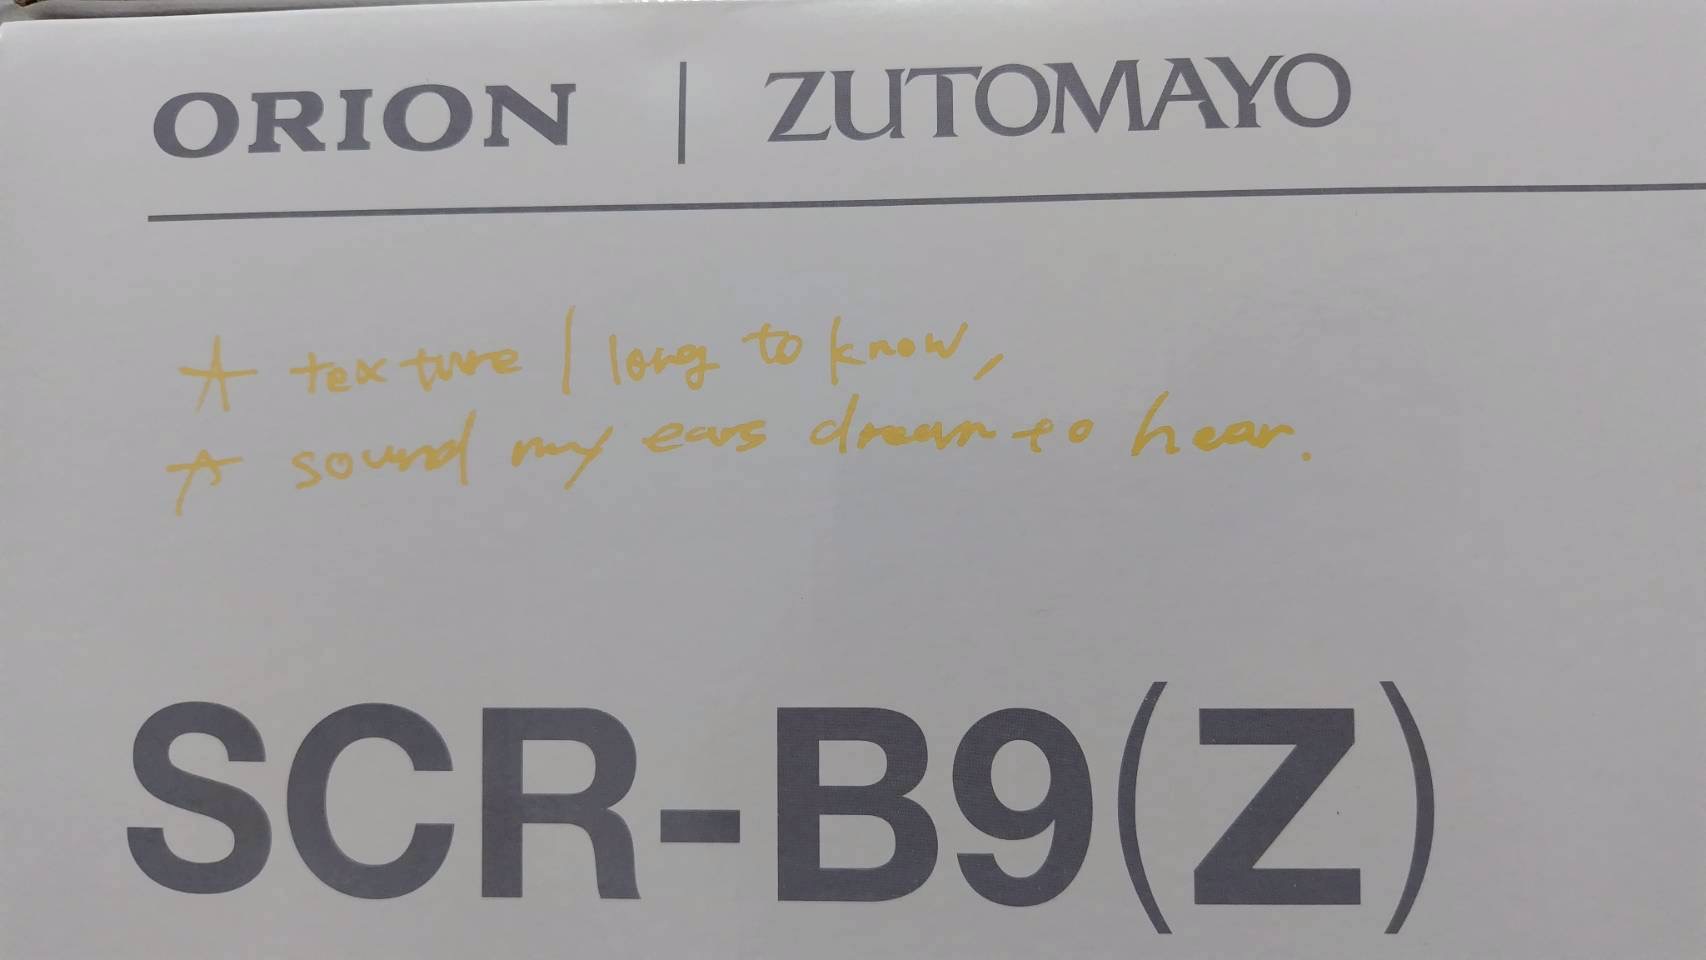 ORION | ZUTOMAYO
A texture I long to know,
A sound my ears dream to hear.
SCR-B9(Z)